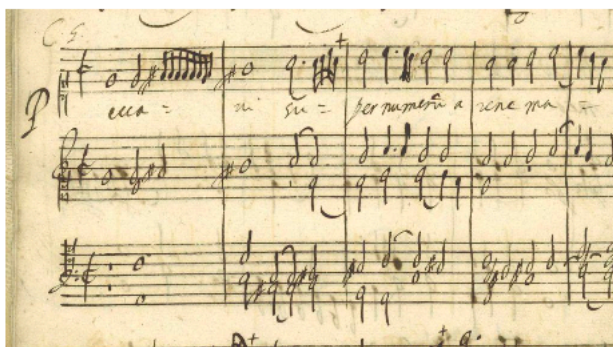 C. S.
Pecca = vi su = per numerū a rene ma =